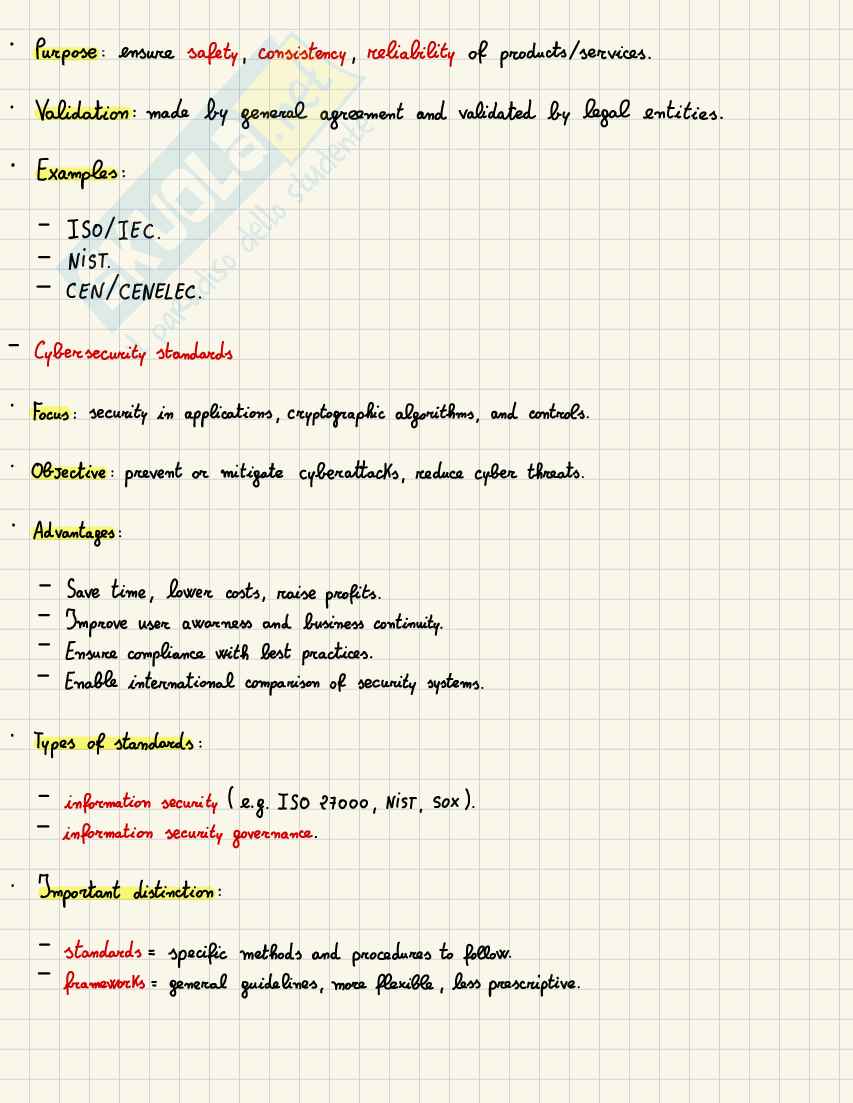 · Purpose: ensure safety, consistency, reliability of products/services.
· Validation: made by general agreement and validated by legal entities.
· Examples:
- ISO/IEC.
- NiST.
- CEN/CENELEC.
- Cybersecurity standards
· Focus: security in applications, cryptographic algorithms, and controls.
· Objective: prevent or mitigate cyberattacks, reduce cyber threats.
· Advantages:
- Save time, lower costs, raise profits.
- Improve user awarness and business continuity.
- Ensure compliance with best practices.
- Enable international comparison of security systems.
· Types of standards:
- information security (e.g. ISO 27000, NiST, SOX).
- information security governance.
· Important distinction:
- standards = specific methods and procedures to follow.
- frameworks = general guidelines, more flexible, less prescriptive.
SKUOLA.net
il paradiso dello studente